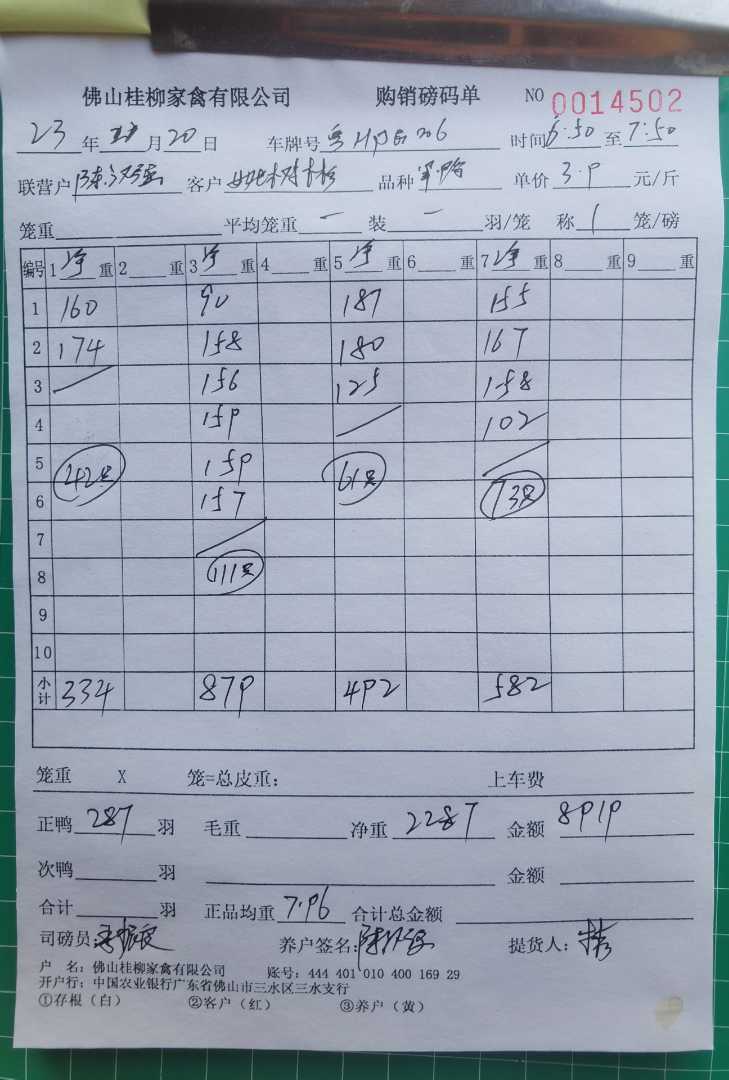 佛山桂柳家禽有限公司 购销磅码单 NO 0014502
23年 月20日 车牌号粤H 706 时间6:50至7:50
联营户陈汉强 客户 树林 品种 单价3.9元/斤
笼重 平均笼重一 装一羽/笼 称1笼/磅
编号 1净重 2重 3净重 4重 5净重 6重 7净重 8重 9重
1 160 90 187 155
2 174 158 180 167
3 156 125 158
4 159 102
5 42只 159 61只
6 157 73只
7
8 111只
9
10
小计 334 879 492 582
笼重 X 笼=总皮重： 上车费
正鸭287羽 毛重 净重2287 金额8919
次鸭 羽 金额
合计 羽 正品均重7.96 合计总金额
司磅员: 养户签名:陈汉强 提货人:
户 名：佛山桂柳家禽有限公司 账号：444 401 010 400 169 29
开户行：中国农业银行广东省佛山市三水区三水支行
①存根（白） ②客户（红） ③养户（黄）